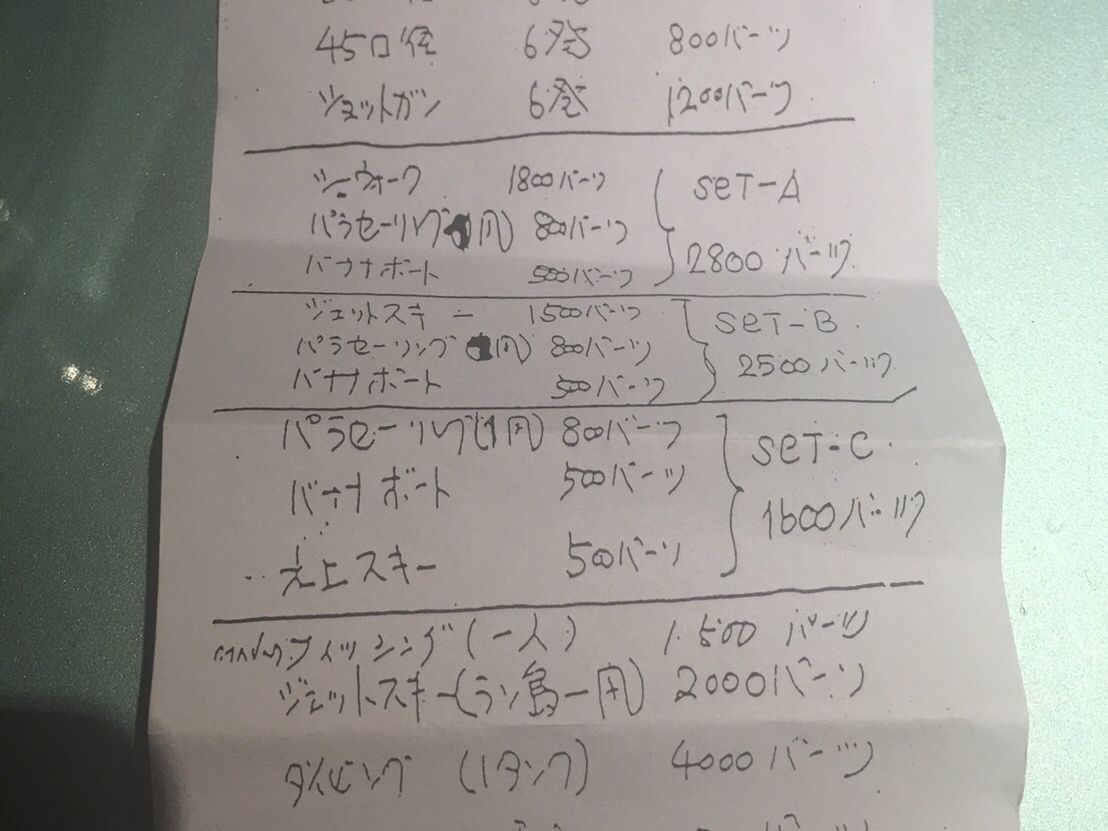 45口径 6発 800バーツ
ショットガン 6発 1200バーツ
シーウォーク 1800バーツ
パラセーリング(1周) 800バーツ
バナナボート 500バーツ
SeT-A
2800バーツ
ジェットスキー 1500バーツ
パラセーリング(1周) 800バーツ
バナナボート 500バーツ
SeT-B
2500バーツ
パラセーリング(1周) 800バーツ
バナナボート 500バーツ
スキー 500バーツ
SeT-C
1600バーツ
フィッシング(一人) 1.500バーツ
ジェットスキー(ラン島一周) 2000バーツ
ダイビング (1タンク) 4000バーツ